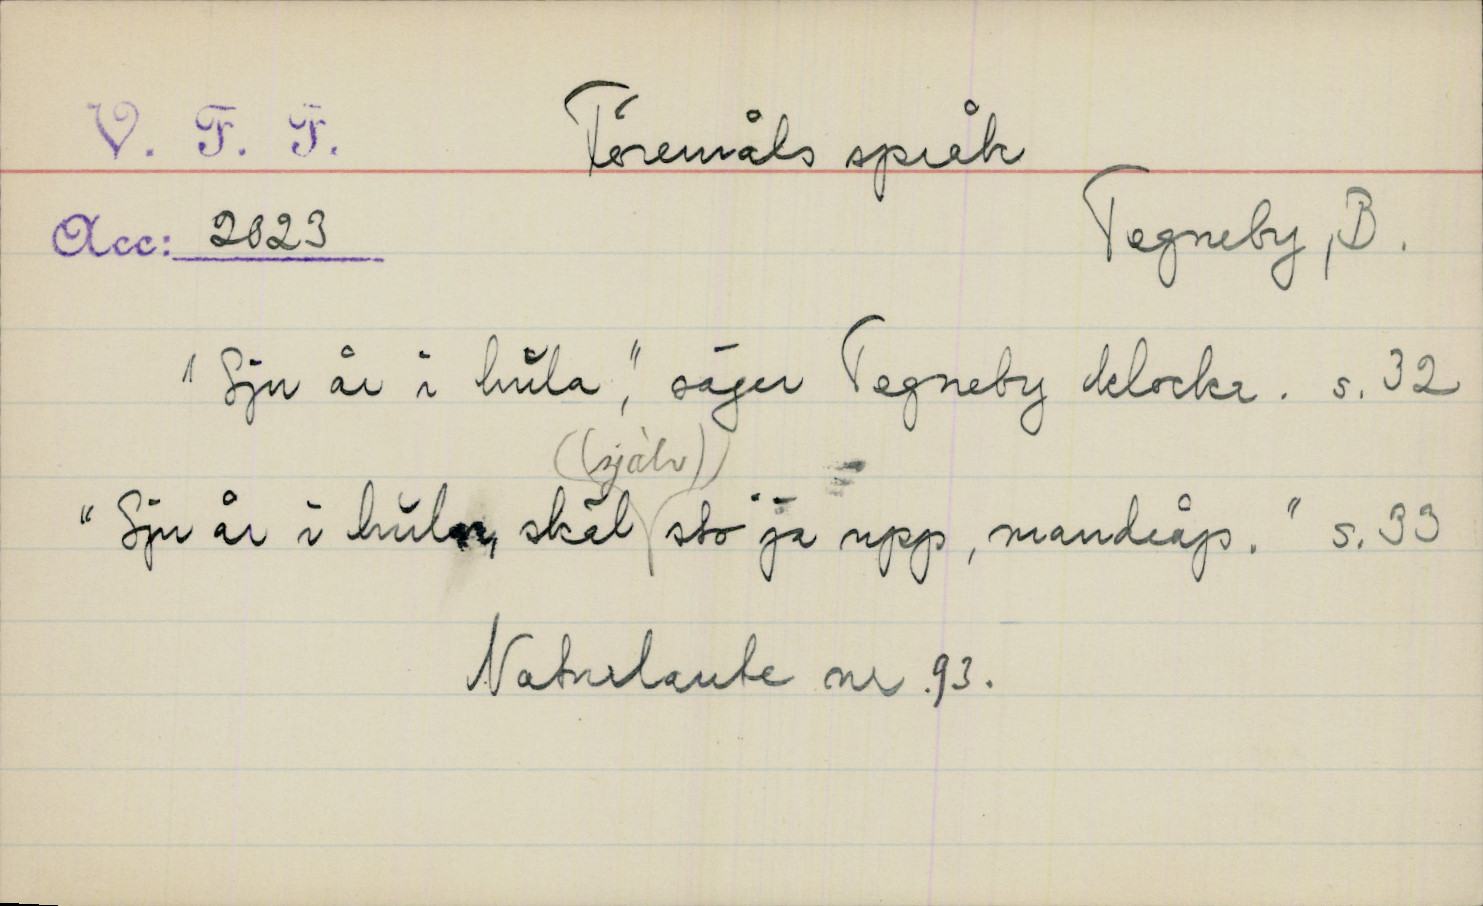 V. F. F. Föremåls språk
Acc: 2023 Tegneby, B.
"Sju år i hula", säger Tegneby klocka. s. 32
((själv))
"Sju år i hula, skäl stö ja upp, mandråp." s. 33
Naturlaute nr 93.